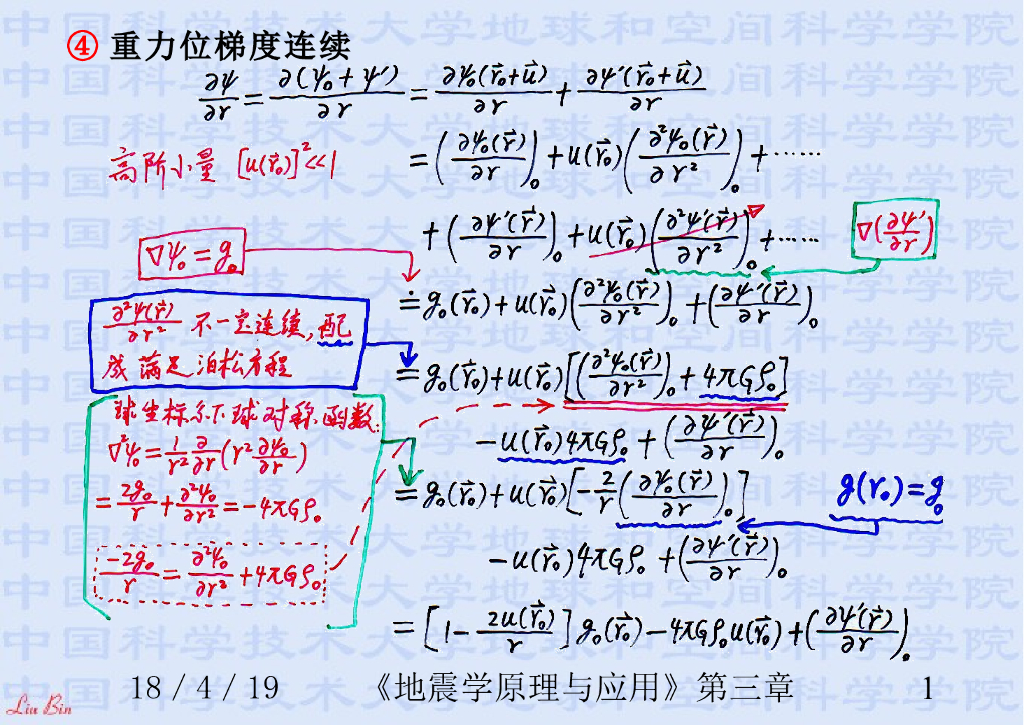 ④ 重力位梯度连续
∂ψ/∂r = ∂(ψ₀+ψ′)/∂r = ∂ψ₀(r⃗₀+u⃗)/∂r + ∂ψ′(r⃗₀+u⃗)/∂r
高阶小量 [u(r⃗₀)]²<<1
= (∂ψ₀(r⃗)/∂r)₀ + u(r⃗₀)(∂²ψ₀(r⃗)/∂r²)₀ + ……
+ (∂ψ′(r⃗)/∂r)₀ + u(r⃗₀)(∂²ψ′(r⃗)/∂r²)₀ + ……
∇(∂ψ′/∂r)
∇ψ₀ = g₀
≐ g₀(r⃗₀) + u(r⃗₀)(∂²ψ₀(r⃗)/∂r²)₀ + (∂ψ′(r⃗)/∂r)₀
∂²ψ(r⃗)/∂r² 不一定连续, 配
成满足泊松方程
= g₀(r⃗₀) + u(r⃗₀)[(∂²ψ₀(r⃗)/∂r²)₀ + 4πGρ₀]
− u(r⃗₀)4πGρ₀ + (∂ψ′(r⃗)/∂r)₀
球坐标系下球对称函数:
∇²ψ₀ = 1/r² ∂/∂r (r² ∂ψ₀/∂r)
= 2g₀/r + ∂²ψ₀/∂r² = −4πGρ₀
−2g₀/r = ∂²ψ₀/∂r² + 4πGρ₀
= g₀(r⃗₀) + u(r⃗₀)[−2/r (∂ψ₀(r⃗)/∂r)₀]
g(r₀) = g₀
− u(r⃗₀)4πGρ₀ + (∂ψ′(r⃗)/∂r)₀
= [1 − 2u(r⃗₀)/r] g₀(r⃗₀) − 4πGρ₀u(r⃗₀) + (∂ψ′(r⃗)/∂r)₀
Liu Bin
18 / 4 / 19 《地震学原理与应用》第三章 1
中国科学技术大学地球和空间科学学院